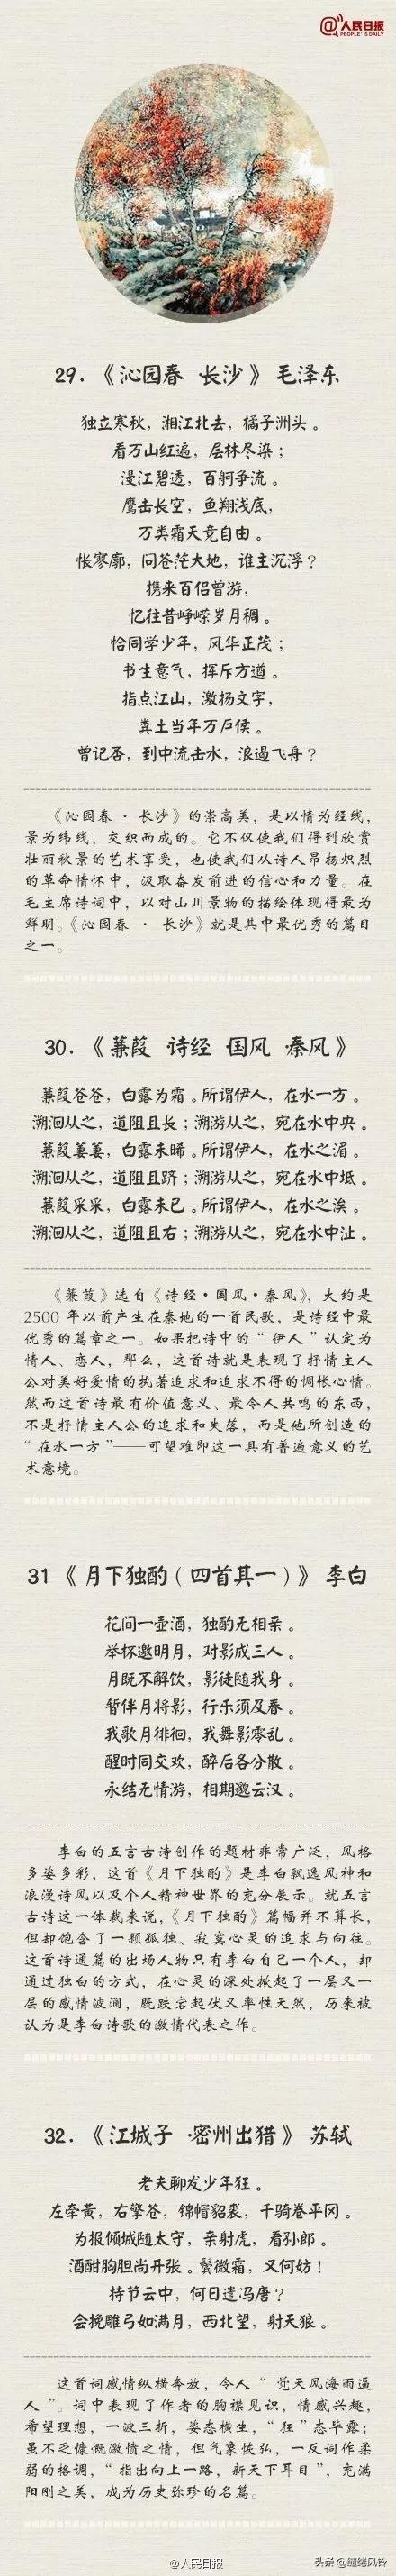 @人民日报
PEOPLE'S DAILY
29.《沁园春·长沙》毛泽东
独立寒秋，湘江北去，橘子洲头。
看万山红遍，层林尽染；
漫江碧透，百舸争流。
鹰击长空，鱼翔浅底，
万类霜天竞自由。
怅寥廓，问苍茫大地，谁主沉浮？
携来百侣曾游，
忆往昔峥嵘岁月稠。
恰同学少年，风华正茂；
书生意气，挥斥方遒。
指点江山，激扬文字，
粪土当年万户侯。
曾记否，到中流击水，浪遏飞舟？
《沁园春·长沙》的崇高美，是以情为经线，
景为纬线，交织而成的。它不仅使我们得到欣赏
壮丽秋景的艺术享受，也使我们从诗人昂扬炽烈
的革命情怀中，汲取奋发前进的信心和力量。在
毛主席诗词中，以对山川景物的描绘体现得最为
鲜明。《沁园春 · 长沙》就是其中最优秀的篇目
之一。
30.《蒹葭 ·诗经 ·国风 ·秦风》
蒹葭苍苍，白露为霜。所谓伊人，在水一方。
溯洄从之，道阻且长；溯游从之，宛在水中央。
蒹葭萋萋，白露未晞。所谓伊人，在水之湄。
溯洄从之，道阻且跻；溯游从之，宛在水中坻。
蒹葭采采，白露未已。所谓伊人，在水之涘。
溯洄从之，道阻且右；溯游从之，宛在水中沚。
《蒹葭》选自《诗经·国风·秦风》，大约是
2500 年以前产生在秦地的一首民歌，是诗经中最
优秀的篇章之一。如果把诗中的“伊人”认定为
情人、恋人，那么，这首诗就是表现了抒情主人
公对美好爱情的执著追求和追求不得的惆怅心情。
然而这首诗最有价值意义、最令人共鸣的东西，
不是抒情主人公的追求和失落，而是他所创造的
“在水一方”——可望难即这一具有普遍意义的艺
术意境。
31《月下独酌（四首其一）》李白
花间一壶酒，独酌无相亲。
举杯邀明月，对影成三人。
月既不解饮，影徒随我身。
暂伴月将影，行乐须及春。
我歌月徘徊，我舞影零乱。
醒时同交欢，醉后各分散。
永结无情游，相期邈云汉。
李白的五言古诗创作的题材非常广泛，风格
多姿多彩，这首《月下独酌》是李白飘逸风神和
浪漫诗风以及个人精神世界的充分展示。就五言
古诗这一体裁来说，《月下独酌》篇幅并不算长，
但却饱含了一颗孤独、寂寞心灵的追求与向往。
这首诗通篇的出场人物只有李白自己一个人，却
通过独白的方式，在心灵的深处掀起了一层又一
层的感情波澜，既跌宕起伏又率性天然，历来被
认为是李白诗歌的激情代表之作。
32.《江城子 ·密州出猎》苏轼
老夫聊发少年狂。
左牵黄，右擎苍，锦帽貂裘，千骑卷平冈。
为报倾城随太守，亲射虎，看孙郎。
酒酣胸胆尚开张。鬓微霜，又何妨！
持节云中，何日遣冯唐？
会挽雕弓如满月，西北望，射天狼。
这首词感情纵横奔放，令人“觉天风海雨逼
人”。词中表现了作者的胸襟见识，情感兴趣，
希望理想，一波三折，姿态横生，“狂”态毕露；
虽不乏慷慨激愤之情，但气象恢弘，一反词作柔
弱的格调，“指出向上一路，新天下耳目”，充满
阳刚之美，成为历史弥珍的名篇。
@人民日报
头条 @缠绵风铃